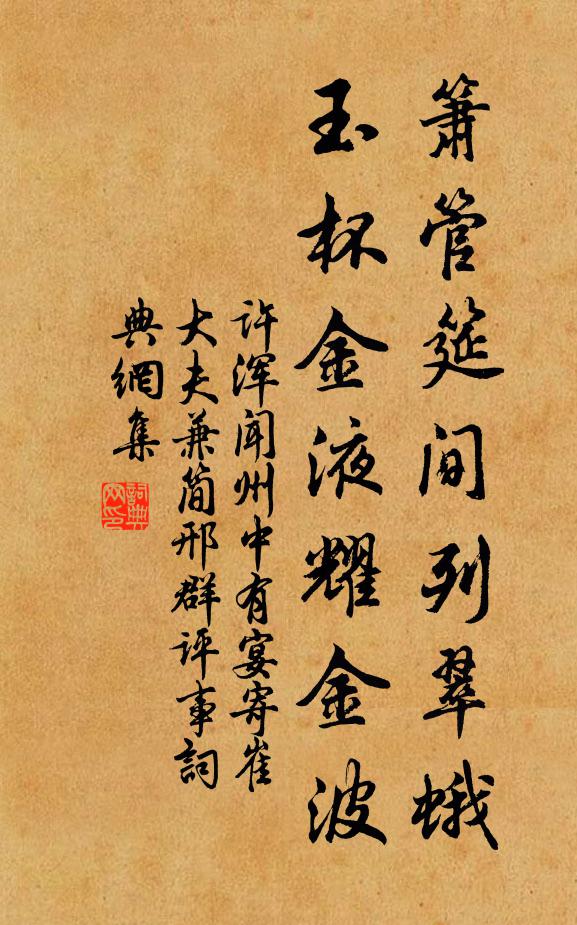 箫管筵间列翠蛾
玉杯金液耀金波
许浑闻州中有宴寄崔
大夫兼简邢群评事詞
典網集
詞典
网印